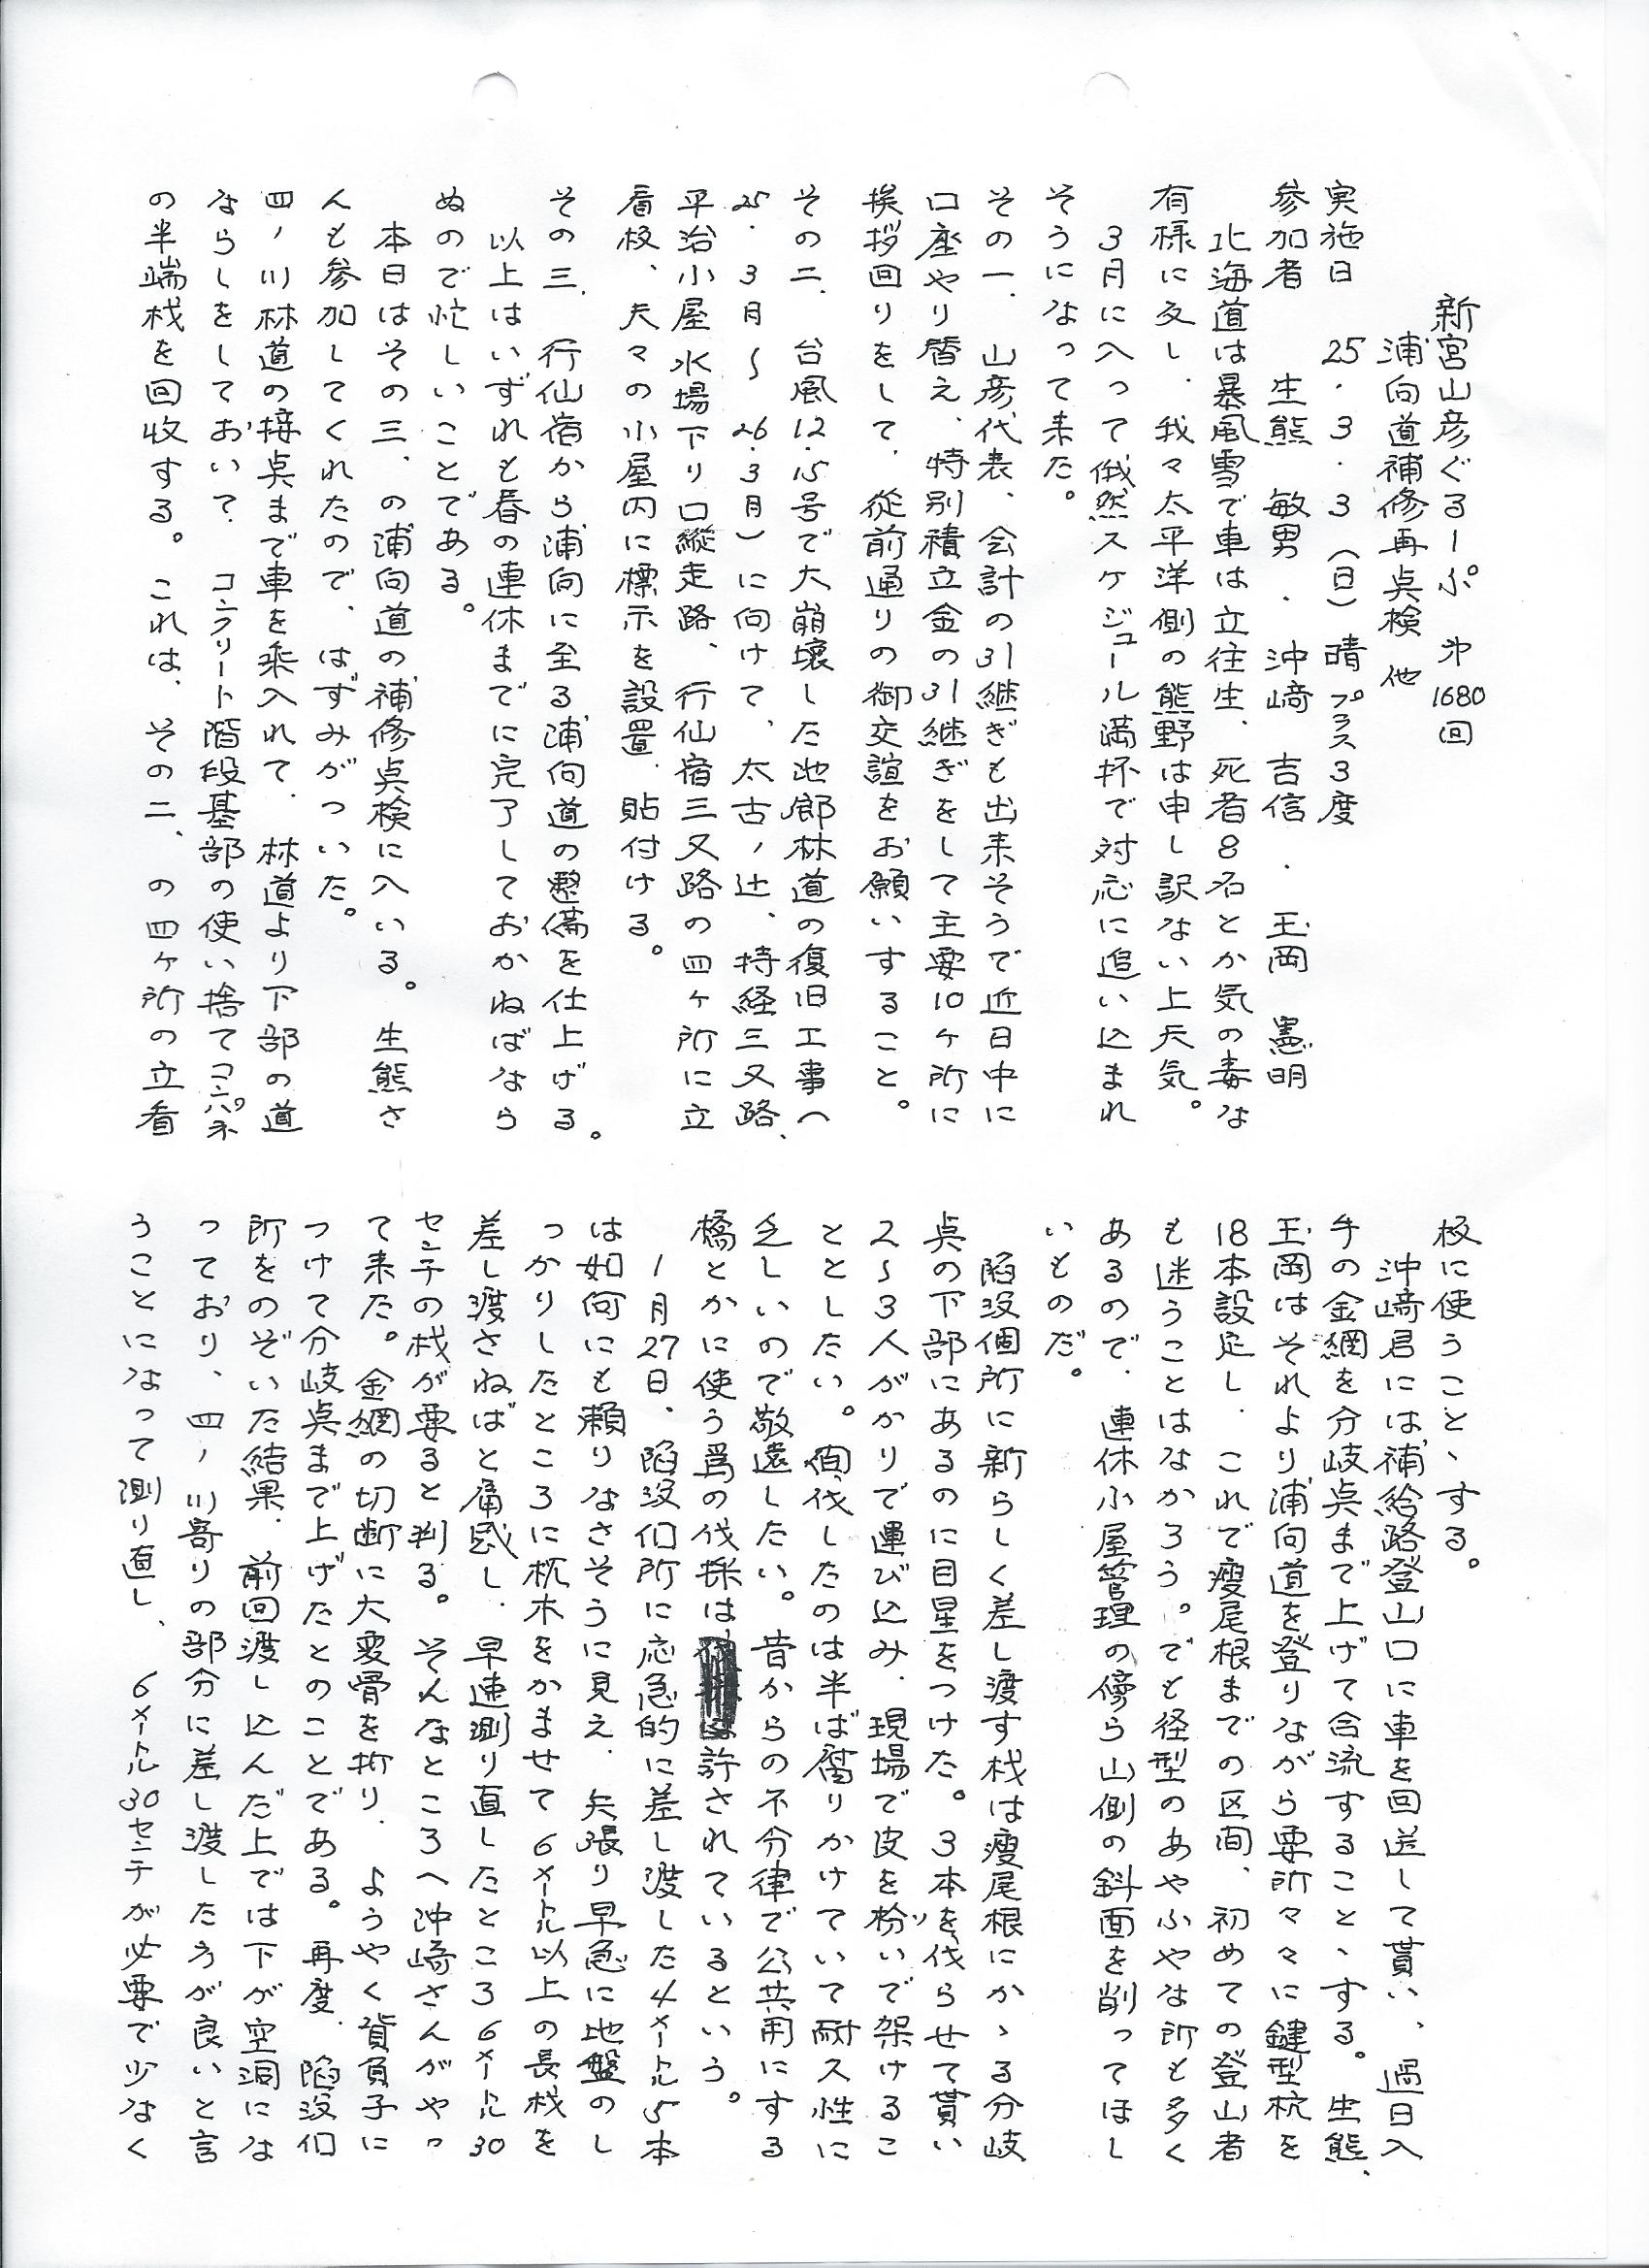 新宮山彦ぐるーぷ 第1680回
浦向道補修再点検 他
実施日 25.3.3(日)晴 プラス3度
参加者 生熊 敏男 . 沖﨑 吉信 . 玉岡 憲明
北海道は暴風雪で車は立往生、死者8名とか気の毒な
有様に反し、我々太平洋側の熊野は申し訳ない上天気。
3月に入って俄然スケジュール満杯で対応に追い込まれ
そうになって来た。
その一、山彦代表、会計の引継ぎも出来そうで近日中に
口座やり替え、特別積立金の引継ぎをして主要10ヶ所に
挨拶回りをして、従前通りの御交誼をお願いすること。
その二、台風12.15号で大崩壊した池郷林道の復旧工事へ
25.3月〜26.3月)に向けて、太古ノ辻、持経三又路、
平治小屋水場下り口縦走路、行仙宿三又路の四ヶ所に立
看板、夫々の小屋内に標示を設置、貼付ける。
その三、行仙宿から浦向に至る浦向道の整備を仕上げる。
以上はいずれも春の連休までに完了しておかねばなら
ぬので忙しいことである。
本日はその三、の浦向道の補修点検に入いる。生熊さ
んも参加してくれたので、はずみがついた。
四ノ川林道の接点まで車を乗入れて、林道より下部の道
ならしをしておい?、コンクリート階段基部の使い捨てコンパネ
の半端材を回収する。これは、その二、の四ヶ所の立看
板に使うこと、する。
沖﨑君には補給路登山口に車を回送して貰い、過日入
手の金網を分岐点まで上げて合流すること、する。生熊、
玉岡はそれより浦向道を登りながら要所々々に鍵型杭を
18本設定し、これで痩尾根までの区間、初めての登山者
も迷うことはなかろう。でも径型のあやふやな所も多く
あるので、連休小屋管理の傍ら山側の斜面を削ってほし
いものだ。
陥没個所に新らしく差し渡す材は痩尾根にかゝる分岐
点の下部にあるのに目星をつけた。3本を伐らせて貰い
2〜3人がかりで運び込み、現場で皮を枌いで架けるこ
ととしたい。間伐したのは半ば腐りかけていて耐久性に
乏しいので敬遠したい。昔からの不分律で公共用にする
橋とかに使う為の伐採は許されているという。
1月27日、陥没個所に応急的に差し渡した4メートル5本
は如何にも頼りなさそうに見え、矢張り早急に地盤のし
っかりしたところに枕木をかませて6メートル以上の長材を
差し渡さねばと痛感し、早速測り直したところ6メートル30
センチの材が要ると判る。そんなところへ沖﨑さんがやっ
て来た。金網の切断に大変骨を折り、ようやく背負子に
つけて分岐点まで上げたとのことである。再度、陥没個
所をのぞいた結果、前回渡し込んだ上では下が空洞にな
っており、四ノ川寄りの部分に差し渡した方が良いと言
うことになって測り直し、6メートル30センチが必要で少なく